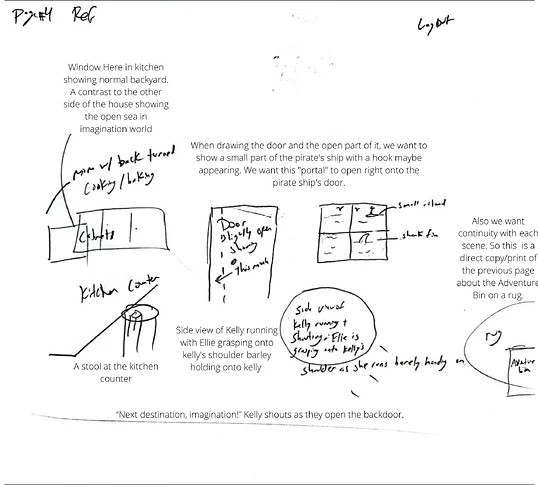 Page#4 Ref
Layout
Window Here in kitchen
showing normal backyard.
A contrast to the other
side of the house showing
the open sea in
imagination world
When drawing the door and the open part of it, we want to
show a small part of the pirate's ship with a hook maybe
appearing. We want this "portal" to open right onto the
pirate ship's door.
mom w/ back turned
Cooking/baking
Cabinets
Door
slightly open
showing
This much
small island
shark fin
Also we want
continuity with each
scene. So this is a
direct copy/print of
the previous page
about the Adventure
Bin on a rug.
Kitchen Counter
A stool at the kitchen
counter
Side view of Kelly running
with Ellie grasping onto
kelly's shoulder barley
holding onto kelly
Side view of
Kelly running +
Shouting. Ellie is
grasping onto Kelly's
shoulder as she runs barely handing on
rug
Adventure
bin
"Next destination, imagination!" Kelly shouts as they open the backdoor.